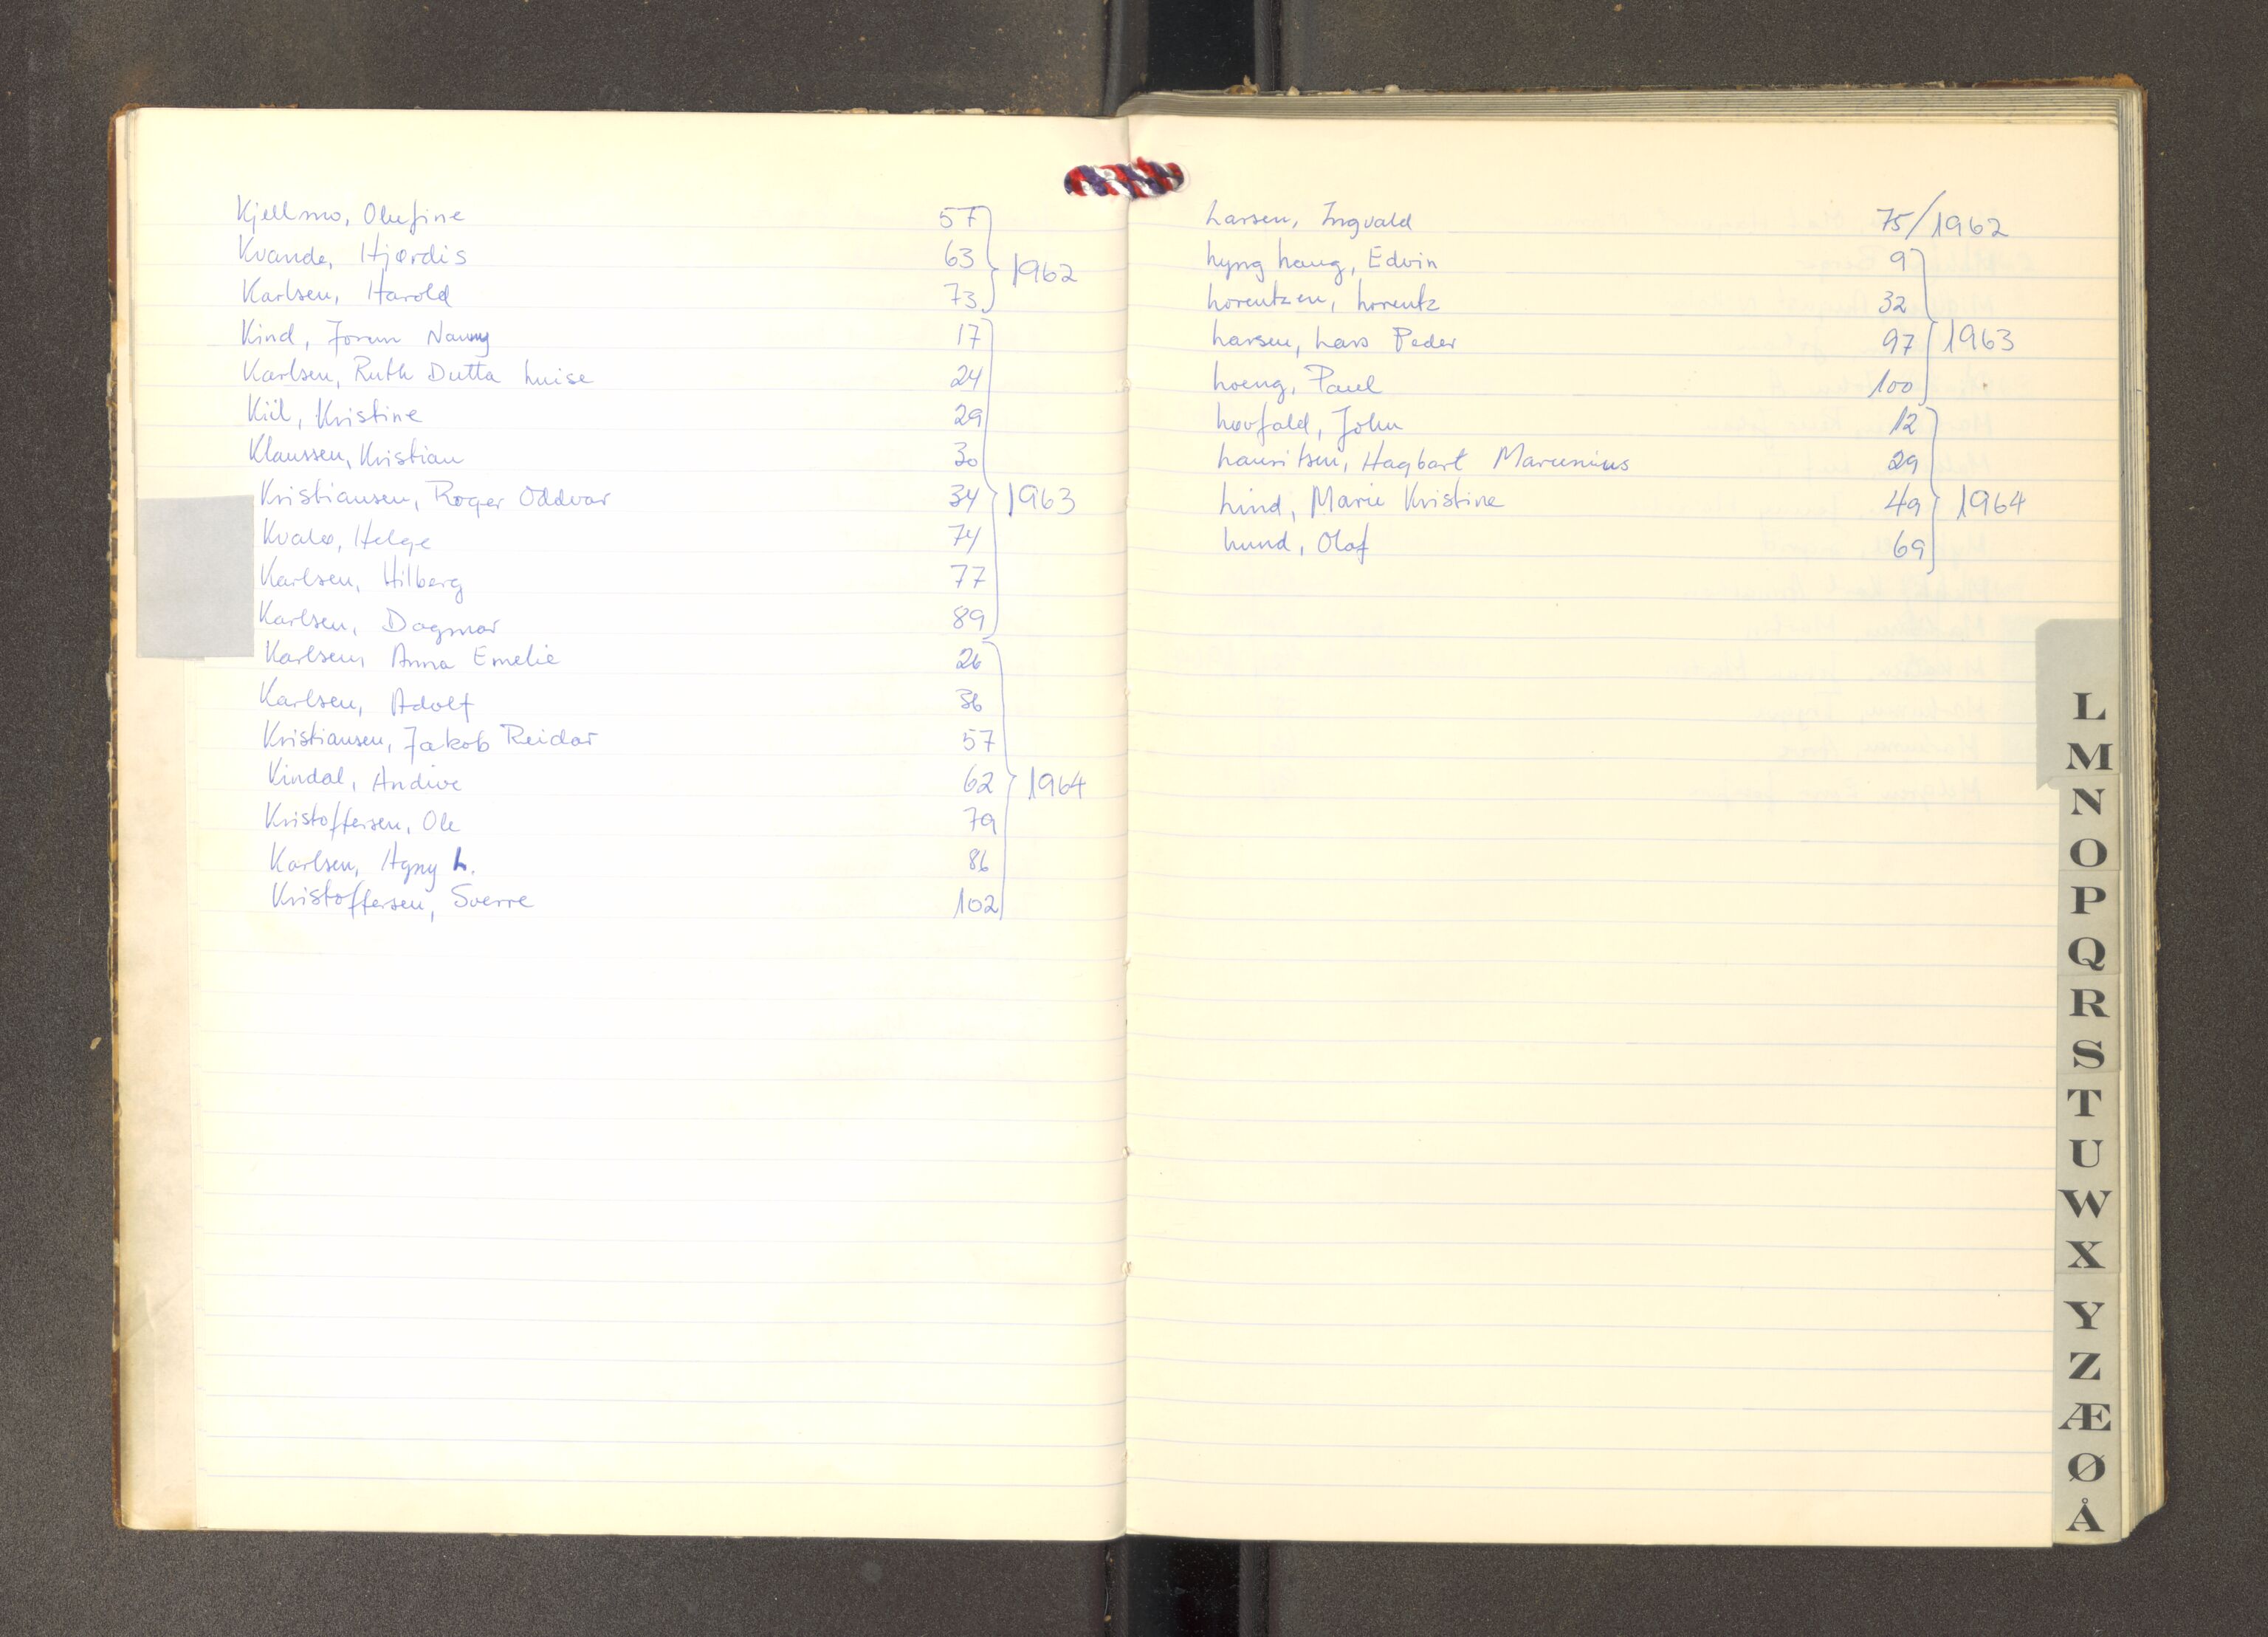 Kjellmo, Olufine 57
Kvande, Hjørdis 63 1962
Karlsen, Harold 73
Kind, Jorun Nanny 17
Karlsen, Ruth Dutta Luise 24
Kiil, Kristine 29
Klaussen, Kristian 30
Kristiansen, Roger Oddvar 34 1963
Kvalø, Helge 74
Karlsen, Hilberg 77
Karlsen, Dagmar 89
Karlsen, Anna Emelie 26
Karlsen, Adolf 36
Kristiansen, Jakob Reidar 57
Kindal, Andive 62 1964
Kristoffersen, Ole 79
Karlsen, Agny L. 86
Kristoffersen, Sverre 102
Larsen, Ingvald 75/1962
Lynghaug, Edvin 9
Lorentzen, Lorentz 32
Larsen, Lars Peder 97 1963
Loeng, Paul 100
Løvfald, John 12
Lauritsen, Hagbart Marcunius 29
Lind, Marie Kristine 49 1964
Lund, Olaf 69
L
M
N
O
P
Q
R
S
T
U
W
X
Y
Z
Æ
Ø
Å